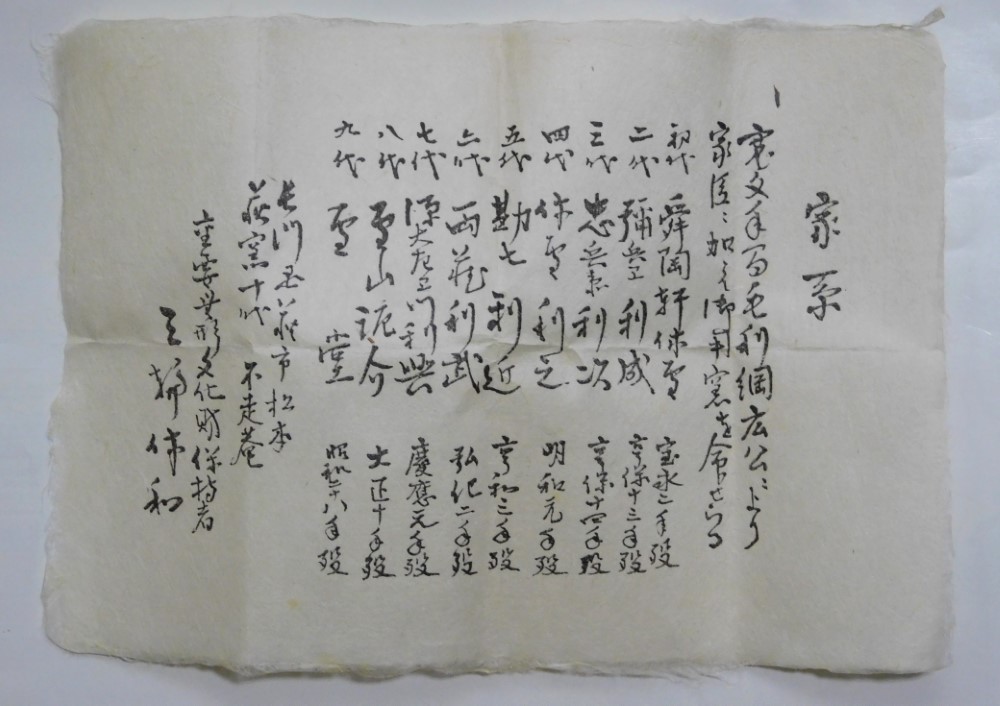 家系
一、寛文年間毛利綱広公ニより
家臣ニ加えられ御用窯を命せらる
初代 舜陶軒休雪 宝永二年歿
二代 彌兵卫利成 享保十三年歿
三代 忠兵衛利次 享保十四年歿
四代 休雪利之 明和元年歿
五代 勘七利近 享和三年歿
六代 西蔵利武 弘化二年歿
七代 源太左卫门利興 慶應元年歿
八代 雪山詭介 大正十年歿
九代 雪堂 昭和二十八年歿
長門國萩市松本
萩窯十代 不走菴
重要無形文化財保持者
三輪休和